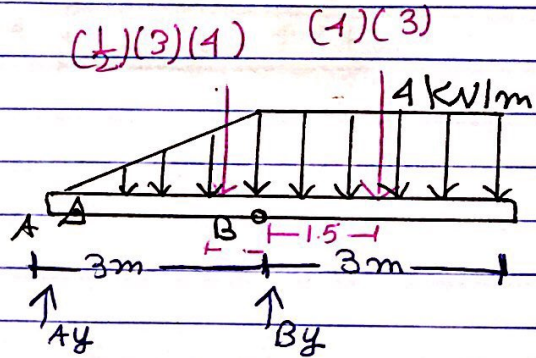 (1/2)(3)(4) (4)(3)
4 KN/m
A B 1.5
3m 3m
Ay By